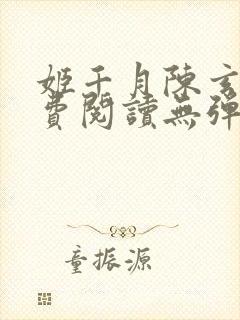 姬千月陳玄
費閱讀無彈
童振源